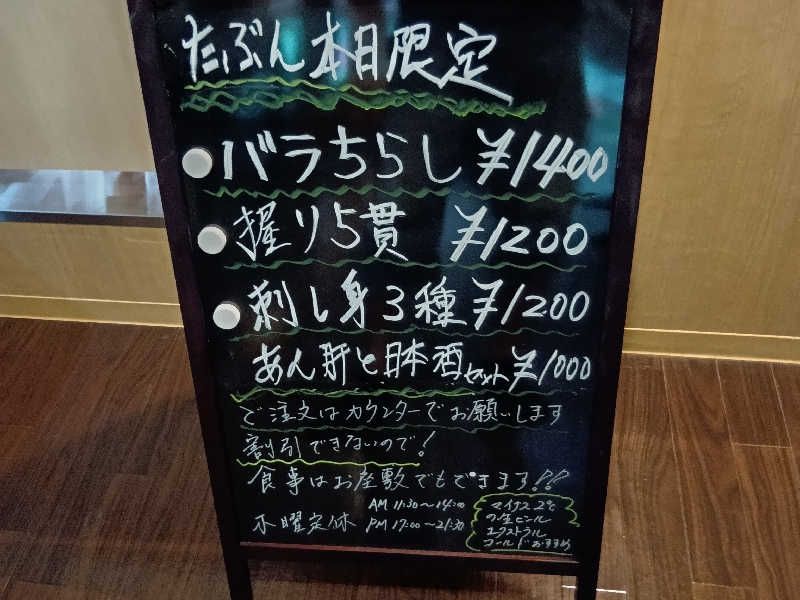 たぶん本日限定
バラちらし ¥1400
握り5貫 ¥1200
刺し身3種 ¥1200
あん肝と日本酒セット ¥1000
ご注文はカウンターでお願いします
割引できないので!
食事はお座敷でもできます!!
AM 11:30〜14:00
木曜定休 PM 17:00〜21:30
マイナス2℃
の生ビール
エクストラ
コールドおすすめ